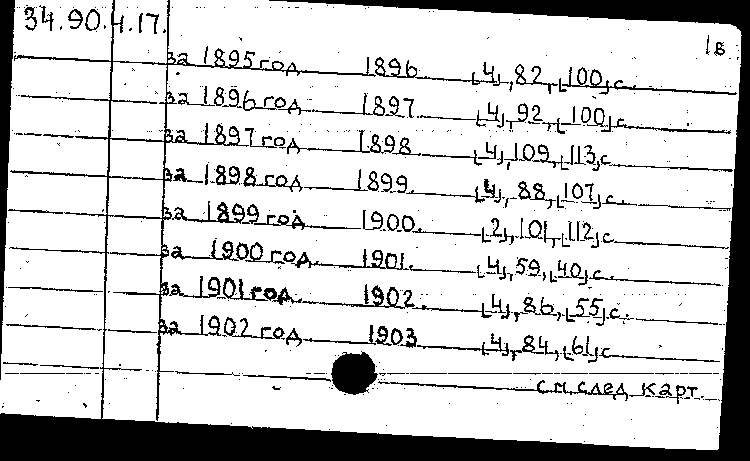 34.90.4.17.
1в
за 1895 год 1896. [4], 82, [100] с.
за 1896 год 1897. [4], 92, [100] с.
за 1897 год 1898 [4], 109, [113] с
за 1898 год 1899. [4], 88, [107] с.
за 1899 год 1900. [2], 101, [112] с
за 1900 год. 1901. [4], 59, [40] с.
за 1901 год. 1902. [4], 86, [55] с.
за 1902 год 1903 [4], 84, [61] с
см. след карт.